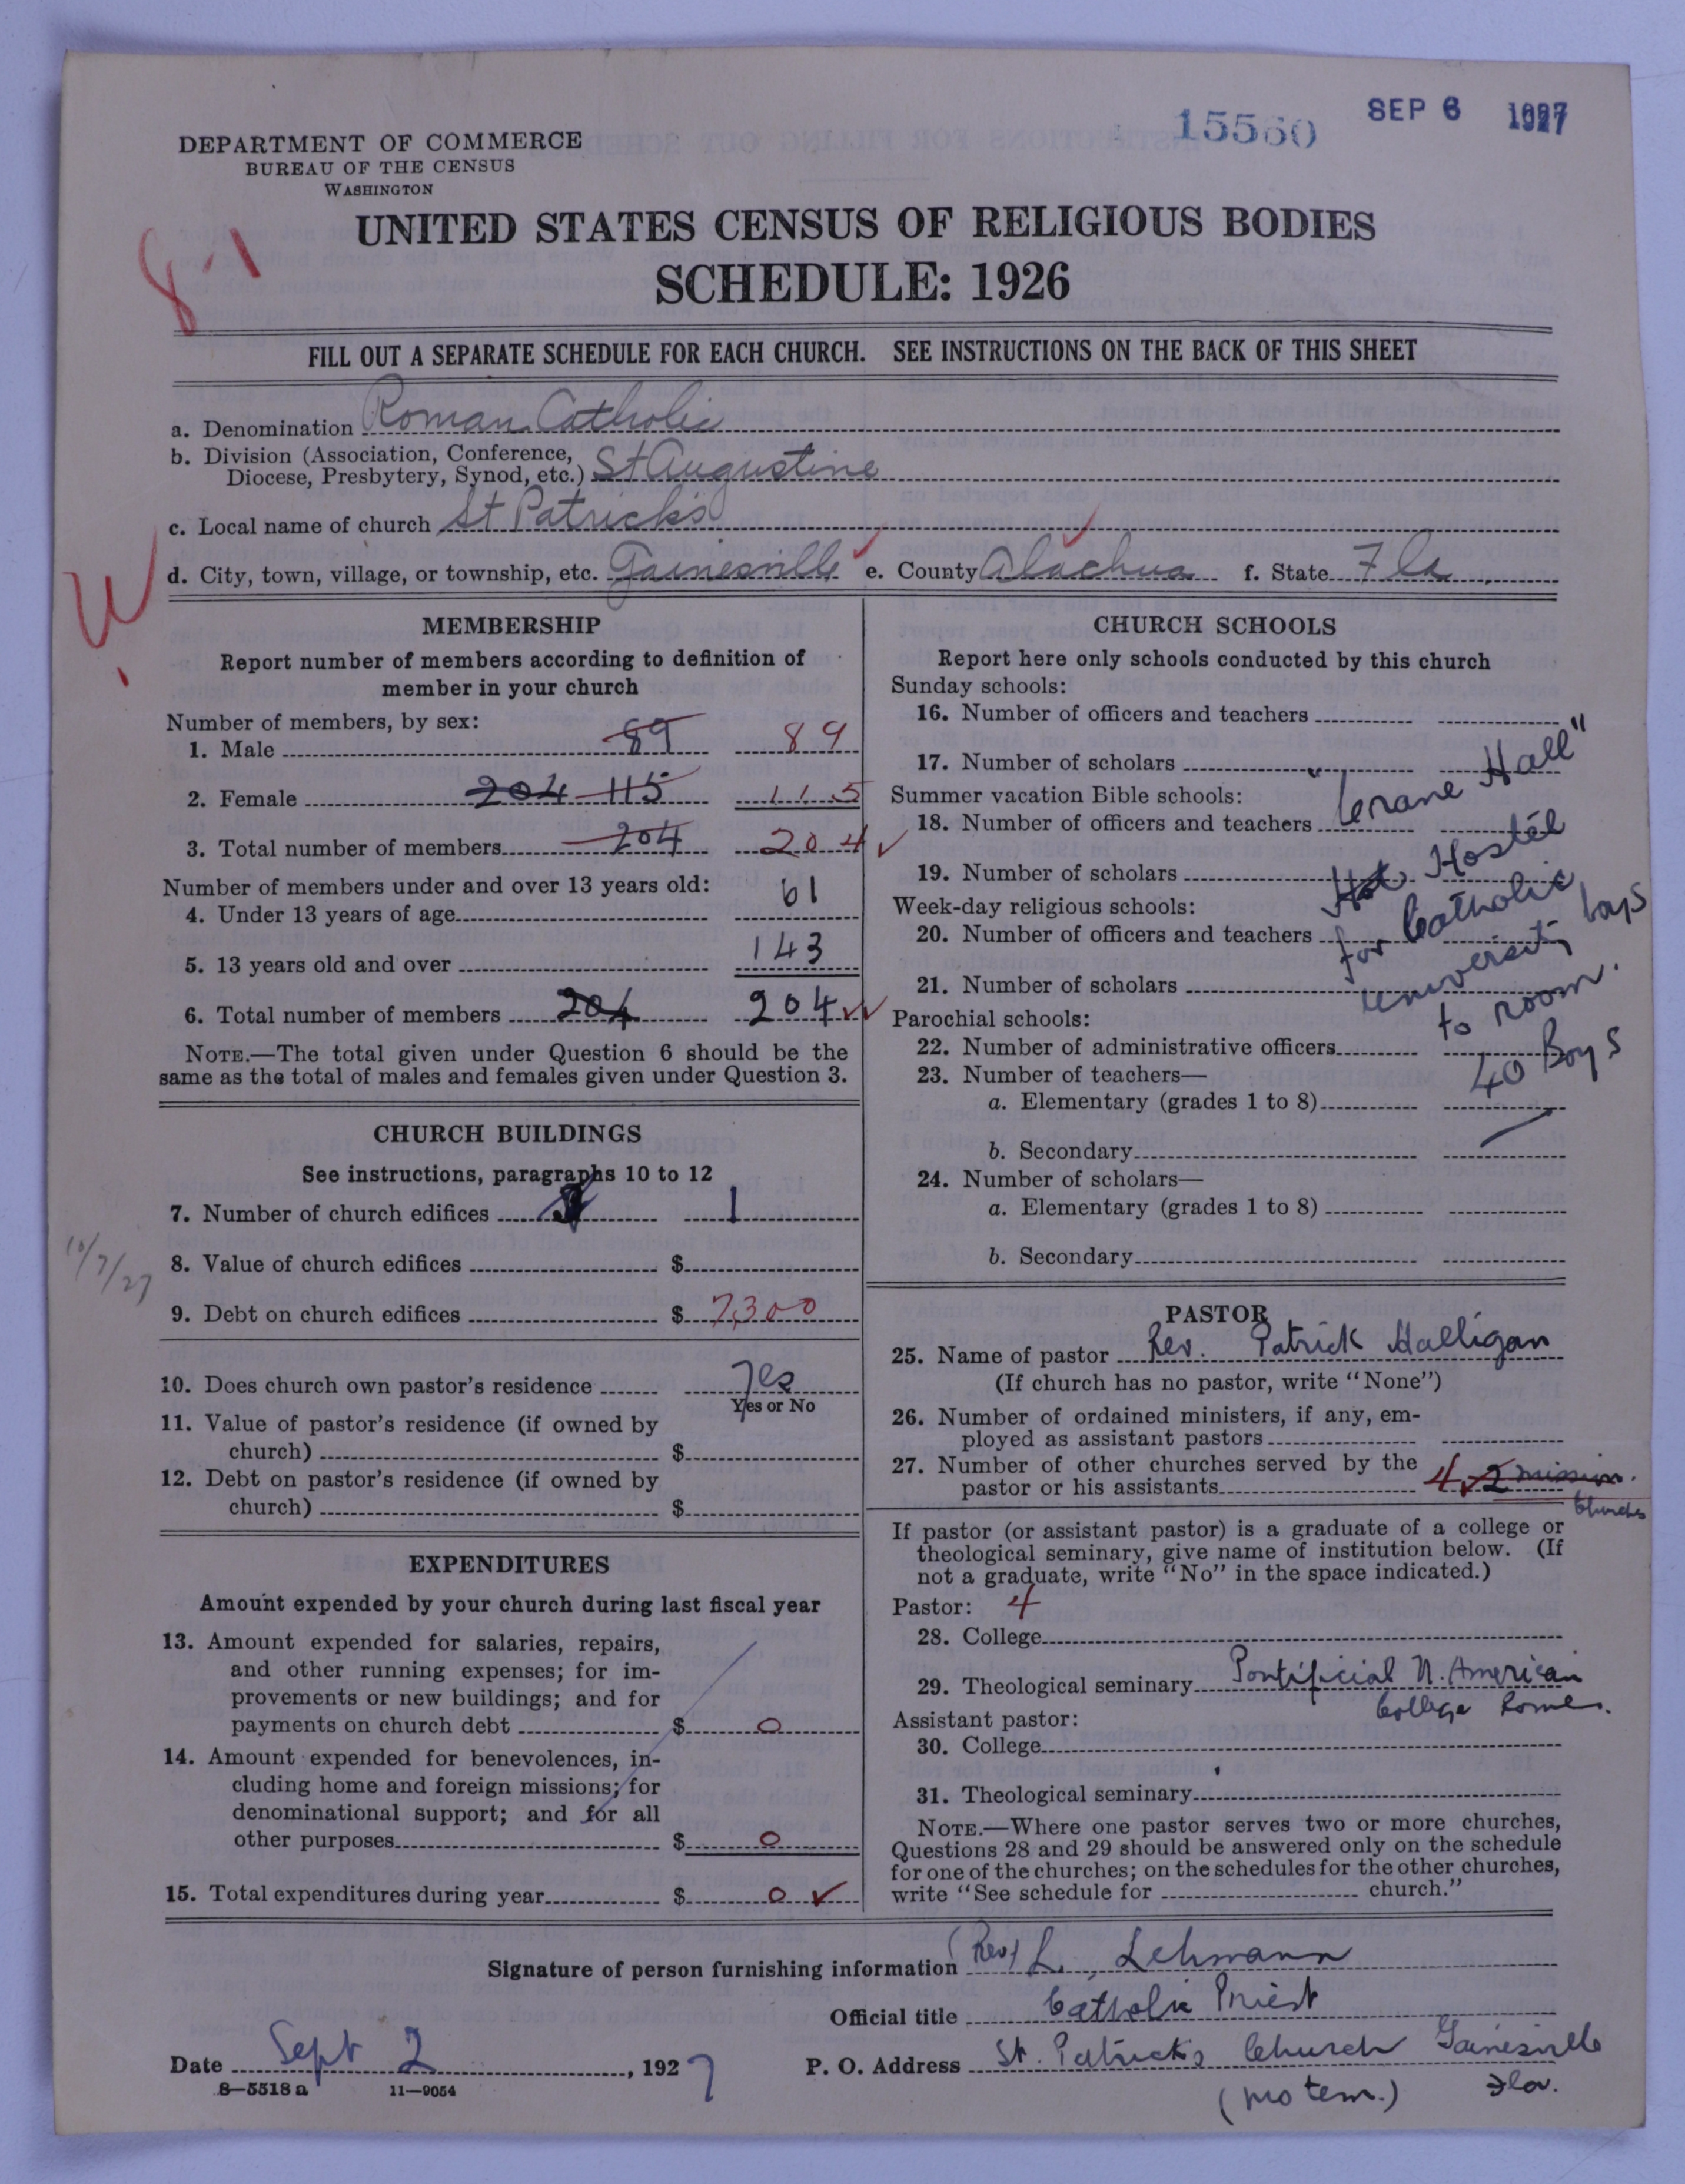 15560 SEP 6 1927
DEPARTMENT OF COMMERCE
BUREAU OF THE CENSUS
WASHINGTON
UNITED STATES CENSUS OF RELIGIOUS BODIES
SCHEDULE: 1926
8-1
FILL OUT A SEPARATE SCHEDULE FOR EACH CHURCH. SEE INSTRUCTIONS ON THE BACK OF THIS SHEET
a. Denomination Roman Catholic
b. Division (Association, Conference,
Diocese, Presbytery, Synod, etc.) St Augustine
c. Local name of church St Patricks
d. City, town, village, or township, etc. Gainesville e. County Alachua f. State Fla
MEMBERSHIP
Report number of members according to definition of
member in your church
Number of members, by sex:
1. Male 89 89
2. Female 204 115 115
3. Total number of members 204 204
Number of members under and over 13 years old:
4. Under 13 years of age 61
5. 13 years old and over 143
6. Total number of members 204 204
NOTE.—The total given under Question 6 should be the
same as the total of males and females given under Question 3.
CHURCH BUILDINGS
See instructions, paragraphs 10 to 12
7. Number of church edifices 1
8. Value of church edifices $
10/7/27
9. Debt on church edifices $ 7,300
10. Does church own pastor's residence Yes
Yes or No
11. Value of pastor's residence (if owned by
church) $
12. Debt on pastor's residence (if owned by
church) $
EXPENDITURES
Amount expended by your church during last fiscal year
13. Amount expended for salaries, repairs,
and other running expenses; for im-
provements or new buildings; and for
payments on church debt $ 0
14. Amount expended for benevolences, in-
cluding home and foreign missions; for
denominational support; and for all
other purposes $ 0
15. Total expenditures during year $ 0
CHURCH SCHOOLS
Report here only schools conducted by this church
Sunday schools:
16. Number of officers and teachers
17. Number of scholars
Summer vacation Bible schools:
18. Number of officers and teachers
19. Number of scholars
Week-day religious schools:
20. Number of officers and teachers
21. Number of scholars
Parochial schools:
22. Number of administrative officers
23. Number of teachers—
a. Elementary (grades 1 to 8)
b. Secondary
24. Number of scholars—
a. Elementary (grades 1 to 8)
b. Secondary
"Crane Hall"
Hot Hostel
for Catholic
university boys
to room.
40 Boys
PASTOR
25. Name of pastor Rev. Patrick Halligan
(If church has no pastor, write "None")
26. Number of ordained ministers, if any, em-
ployed as assistant pastors
27. Number of other churches served by the
pastor or his assistants 4 2 mission
Churches
If pastor (or assistant pastor) is a graduate of a college or
theological seminary, give name of institution below. (If
not a graduate, write "No" in the space indicated.)
Pastor: 4
28. College
29. Theological seminary Pontificial N. American
College Rome.
Assistant pastor:
30. College
31. Theological seminary
NOTE.—Where one pastor serves two or more churches,
Questions 28 and 29 should be answered only on the schedule
for one of the churches; on the schedules for the other churches,
write "See schedule for church."
Signature of person furnishing information (Rev) L. Lehmann
Official title Catholic Priest
Date Sept 2, 1927 P. O. Address St. Patricks Church Gainesville
8—5518 a 11—9054 (pro tem.) Fla.